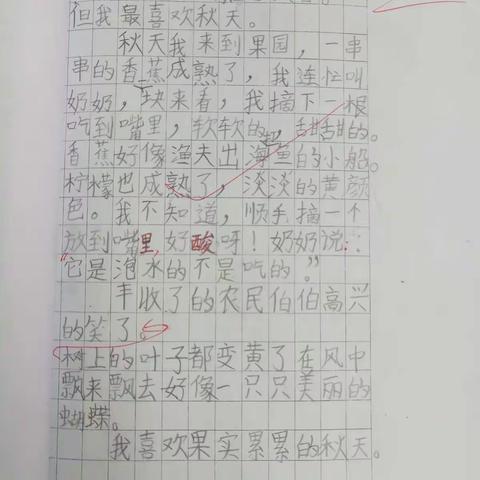 但我最喜欢秋天。
秋天我来到果园，一串
串的香蕉成熟了，我连忙叫
奶奶，快来看，我摘下一根
吃到嘴里，软软的，甜甜的。
香蕉好像渔夫出海鱼的小船。
柠檬也成熟了，淡淡的黄颜
色。我不知道，顺手摘一个
放到嘴里，好酸呀！奶奶说：
“它是泡水的不是吃的。”
丰收了的农民伯伯高兴
的笑了。
树上的叶子都变黄了在风中
飘来飘去好像一只只美丽的
蝴蝶。
我喜欢果实累累的秋天。